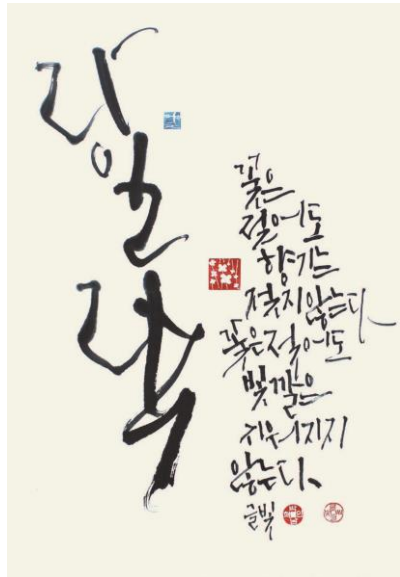 라일락
꽃은
젖어도
향기는
젖지 않는다
꽃은 젖어도
빛깔은
지워지지
않는다
글빛